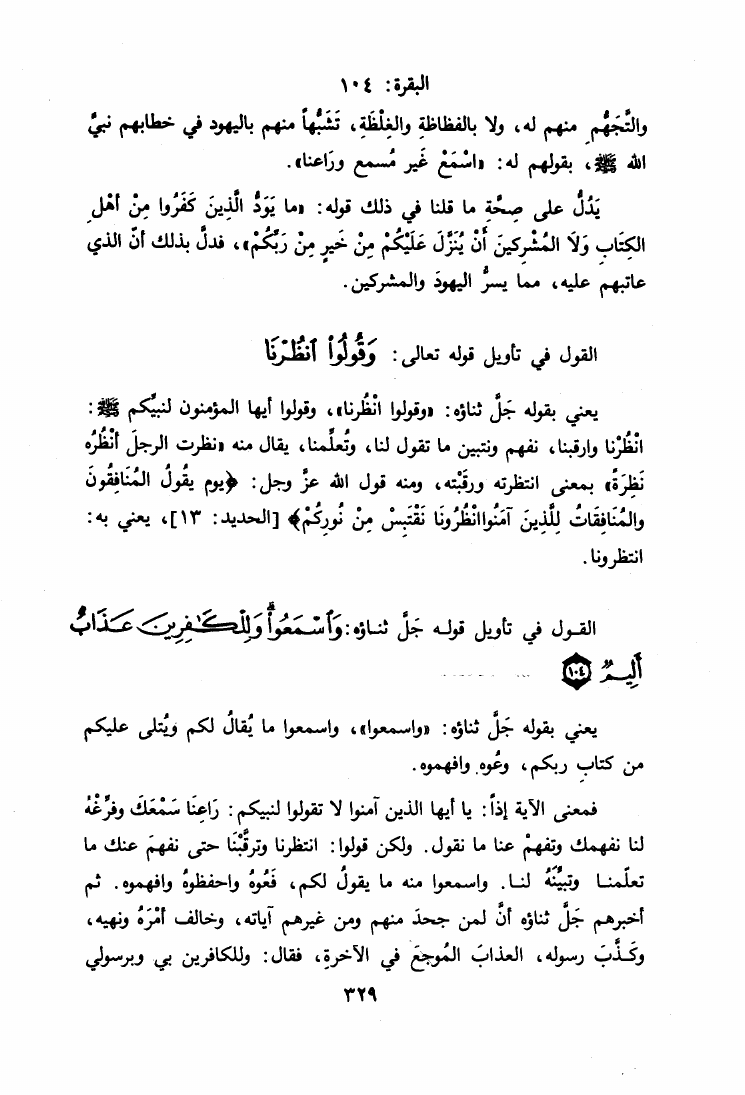 البقرة: ١٠٤
والتَّجَهُّمِ منهم له، ولا بالفظاظةِ والغِلْظَةِ، تَشَبُّهاً منهم باليهود في خطابهم نبيَّ
الله ﷺ، بقولهم له: «اسْمَعْ غَير مُسمع ورَاعنا».
يَدُلُّ على صِحَّةِ ما قلنا في ذلك قوله: «ما يَوَدُّ الَّذِينَ كَفَرُوا مِنْ أهْلِ
الكِتَابِ وَلَا المُشْرِكينَ أَنْ يُنَزَّلَ عَلَيْكُمْ مِنْ خَيرٍ مِنْ رَبِّكُمْ»، فدلَّ بذلك أنّ الذي
عاتبهم عليه، مما يسرُّ اليهودَ والمشركين.
القول في تأويل قوله تعالى: وَقُولُوا۟ ٱنظُرْنَا
يعني بقوله جَلَّ ثناؤه: «وقولوا انْظُرنا»، وقولوا أيها المؤمنون لنبيِّكم ﷺ:
انْظُرْنا وارقبنا، نفهم ونتبين ما تقول لنا، وتُعلِّمنا، يقال منه «نظرت الرجلَ أنْظُرُه
نَظِرَةً» بمعنى انتظرته ورقَبْته، ومنه قول الله عزَّ وجل: ﴿يوم يقُولُ المُنَافِقُونَ
والمُنَافِقَاتُ لِلَّذِينَ آمَنُوا انْظُرُونَا نَقْتَبِسْ مِنْ نُورِكُمْ﴾ [الحديد: ١٣]، يعني به:
انتظرونا.
القول في تأويل قوله جَلَّ ثناؤه: وَٱسْمَعُوا۟ۗ وَلِلْكَـٰفِرِينَ عَذَابٌ
أَلِيمٌ ١٠٤
يعني بقوله جَلَّ ثناؤه: «واسمعوا»، واسمعوا ما يُقالُ لكم ويُتلى عليكم
من كتابِ ربكم، وعُوه وافهموه.
فمعنى الآية إذاً: يا أيها الذين آمنوا لا تقولوا لنبيكم: رَاعِنَا سَمْعَكَ وفرِّغْهُ
لنا نفهمك وتفهمْ عنا ما نقول. ولكن قولوا: انتظرنا وترقَّبْنَا حتى نفهمَ عنك ما
تعلّمنا وتبيِّنُهُ لنا. واسمعوا منه ما يقولُ لكم، فَعُوهُ واحفظوهُ وافهموه. ثم
أخبرهم جَلَّ ثناؤه أنَّ لمن جحدَ منهم ومن غيرهم آياته، وخالف أمْرَهُ ونهيه،
وكَذَّبَ رسوله، العذابَ المُوجعَ في الآخرةِ، فقال: وللكافرين بي وبرسولي
٣٢٩